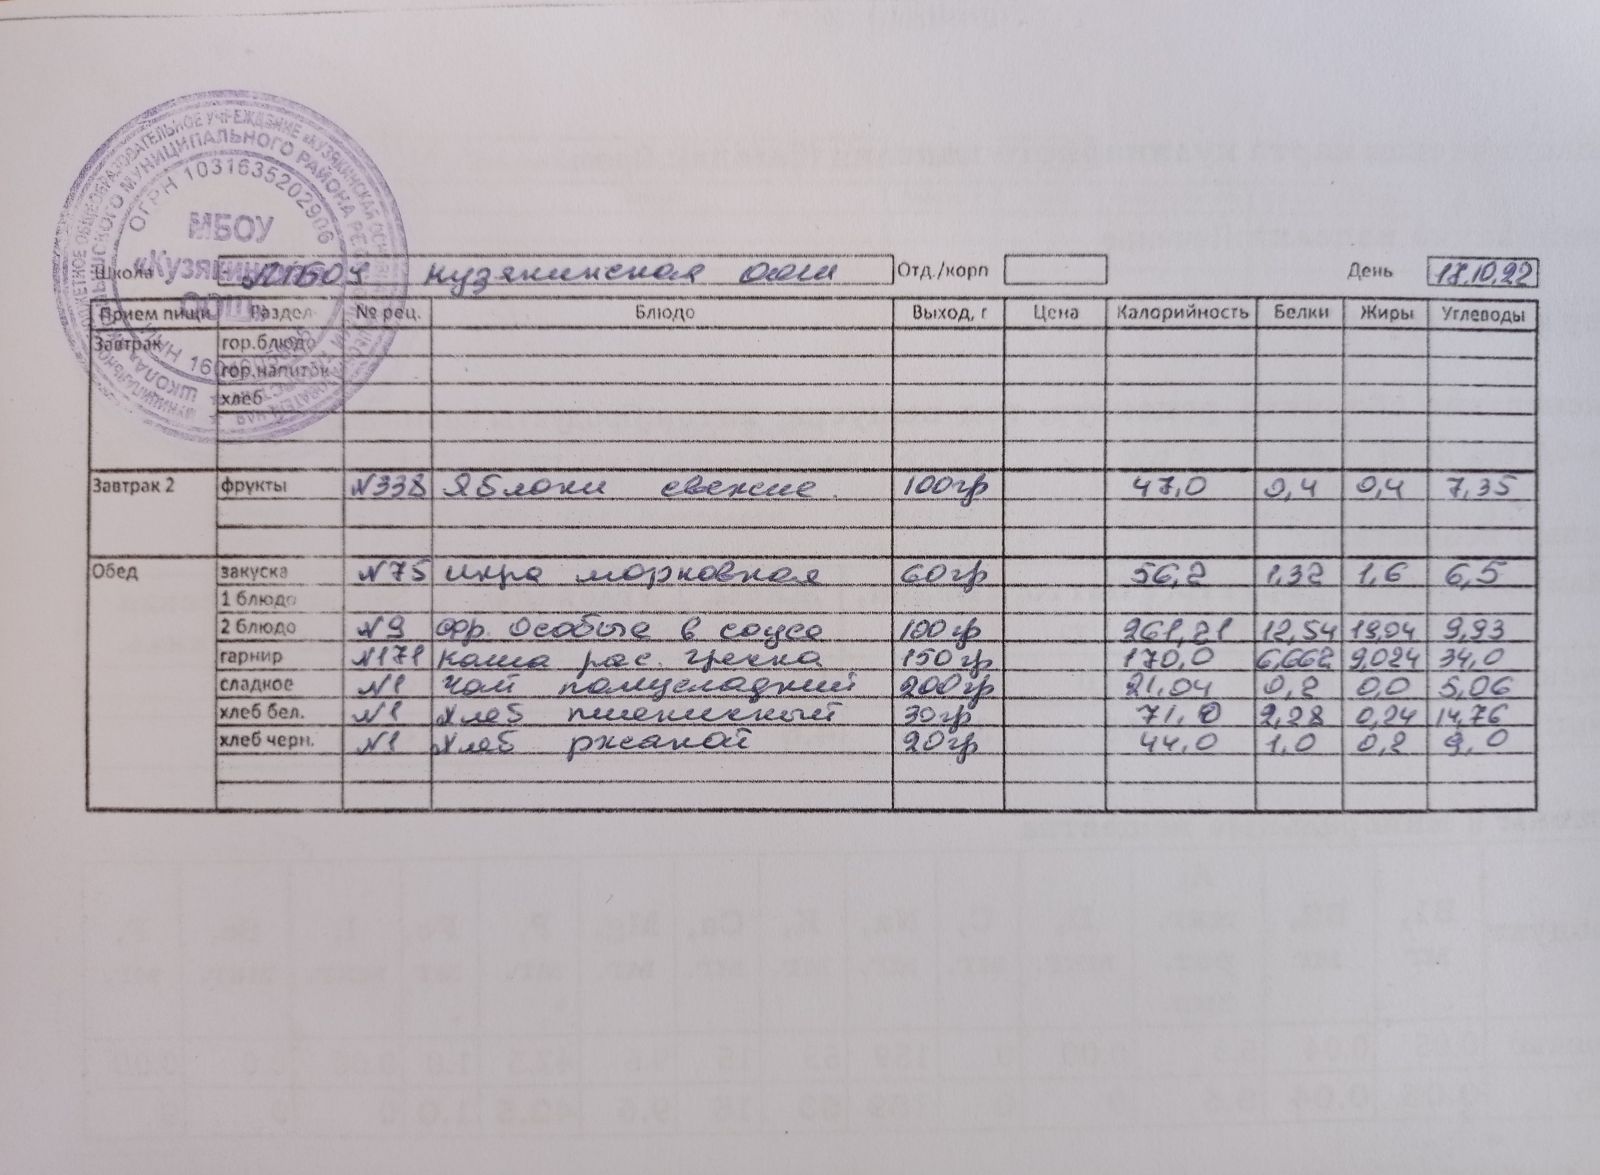 МБОУ
«Кузякинская
ООШ»
ОГРН 1031635202906
Школа МБОУ Кузякинская оош Отд./корп День 18.10.22
Прием пищи Раздел № рец. Блюдо Выход, г Цена Калорийность Белки Жиры Углеводы
Завтрак гор.блюдо
гор.напиток
хлеб
Завтрак 2 фрукты №338 Яблоки свежие 100гр 47,0 0,4 0,4 7,35
Обед закуска №75 икра морковная 60гр 56,2 1,32 1,6 6,5
1 блюдо
2 блюдо №9 фр. Особые в соусе 100гр 261,21 12,54 19,04 9,93
гарнир №171 каша рас. гречка 150гр 170,0 6,662 9,024 34,0
сладкое №1 Чай полусладкий 200гр 21,04 0,2 0,0 5,06
хлеб бел. №1 Хлеб пшеничный 30гр 71,0 2,28 0,24 14,76
хлеб черн. №1 Хлеб ржаной 20гр 44,0 1,0 0,2 9,0